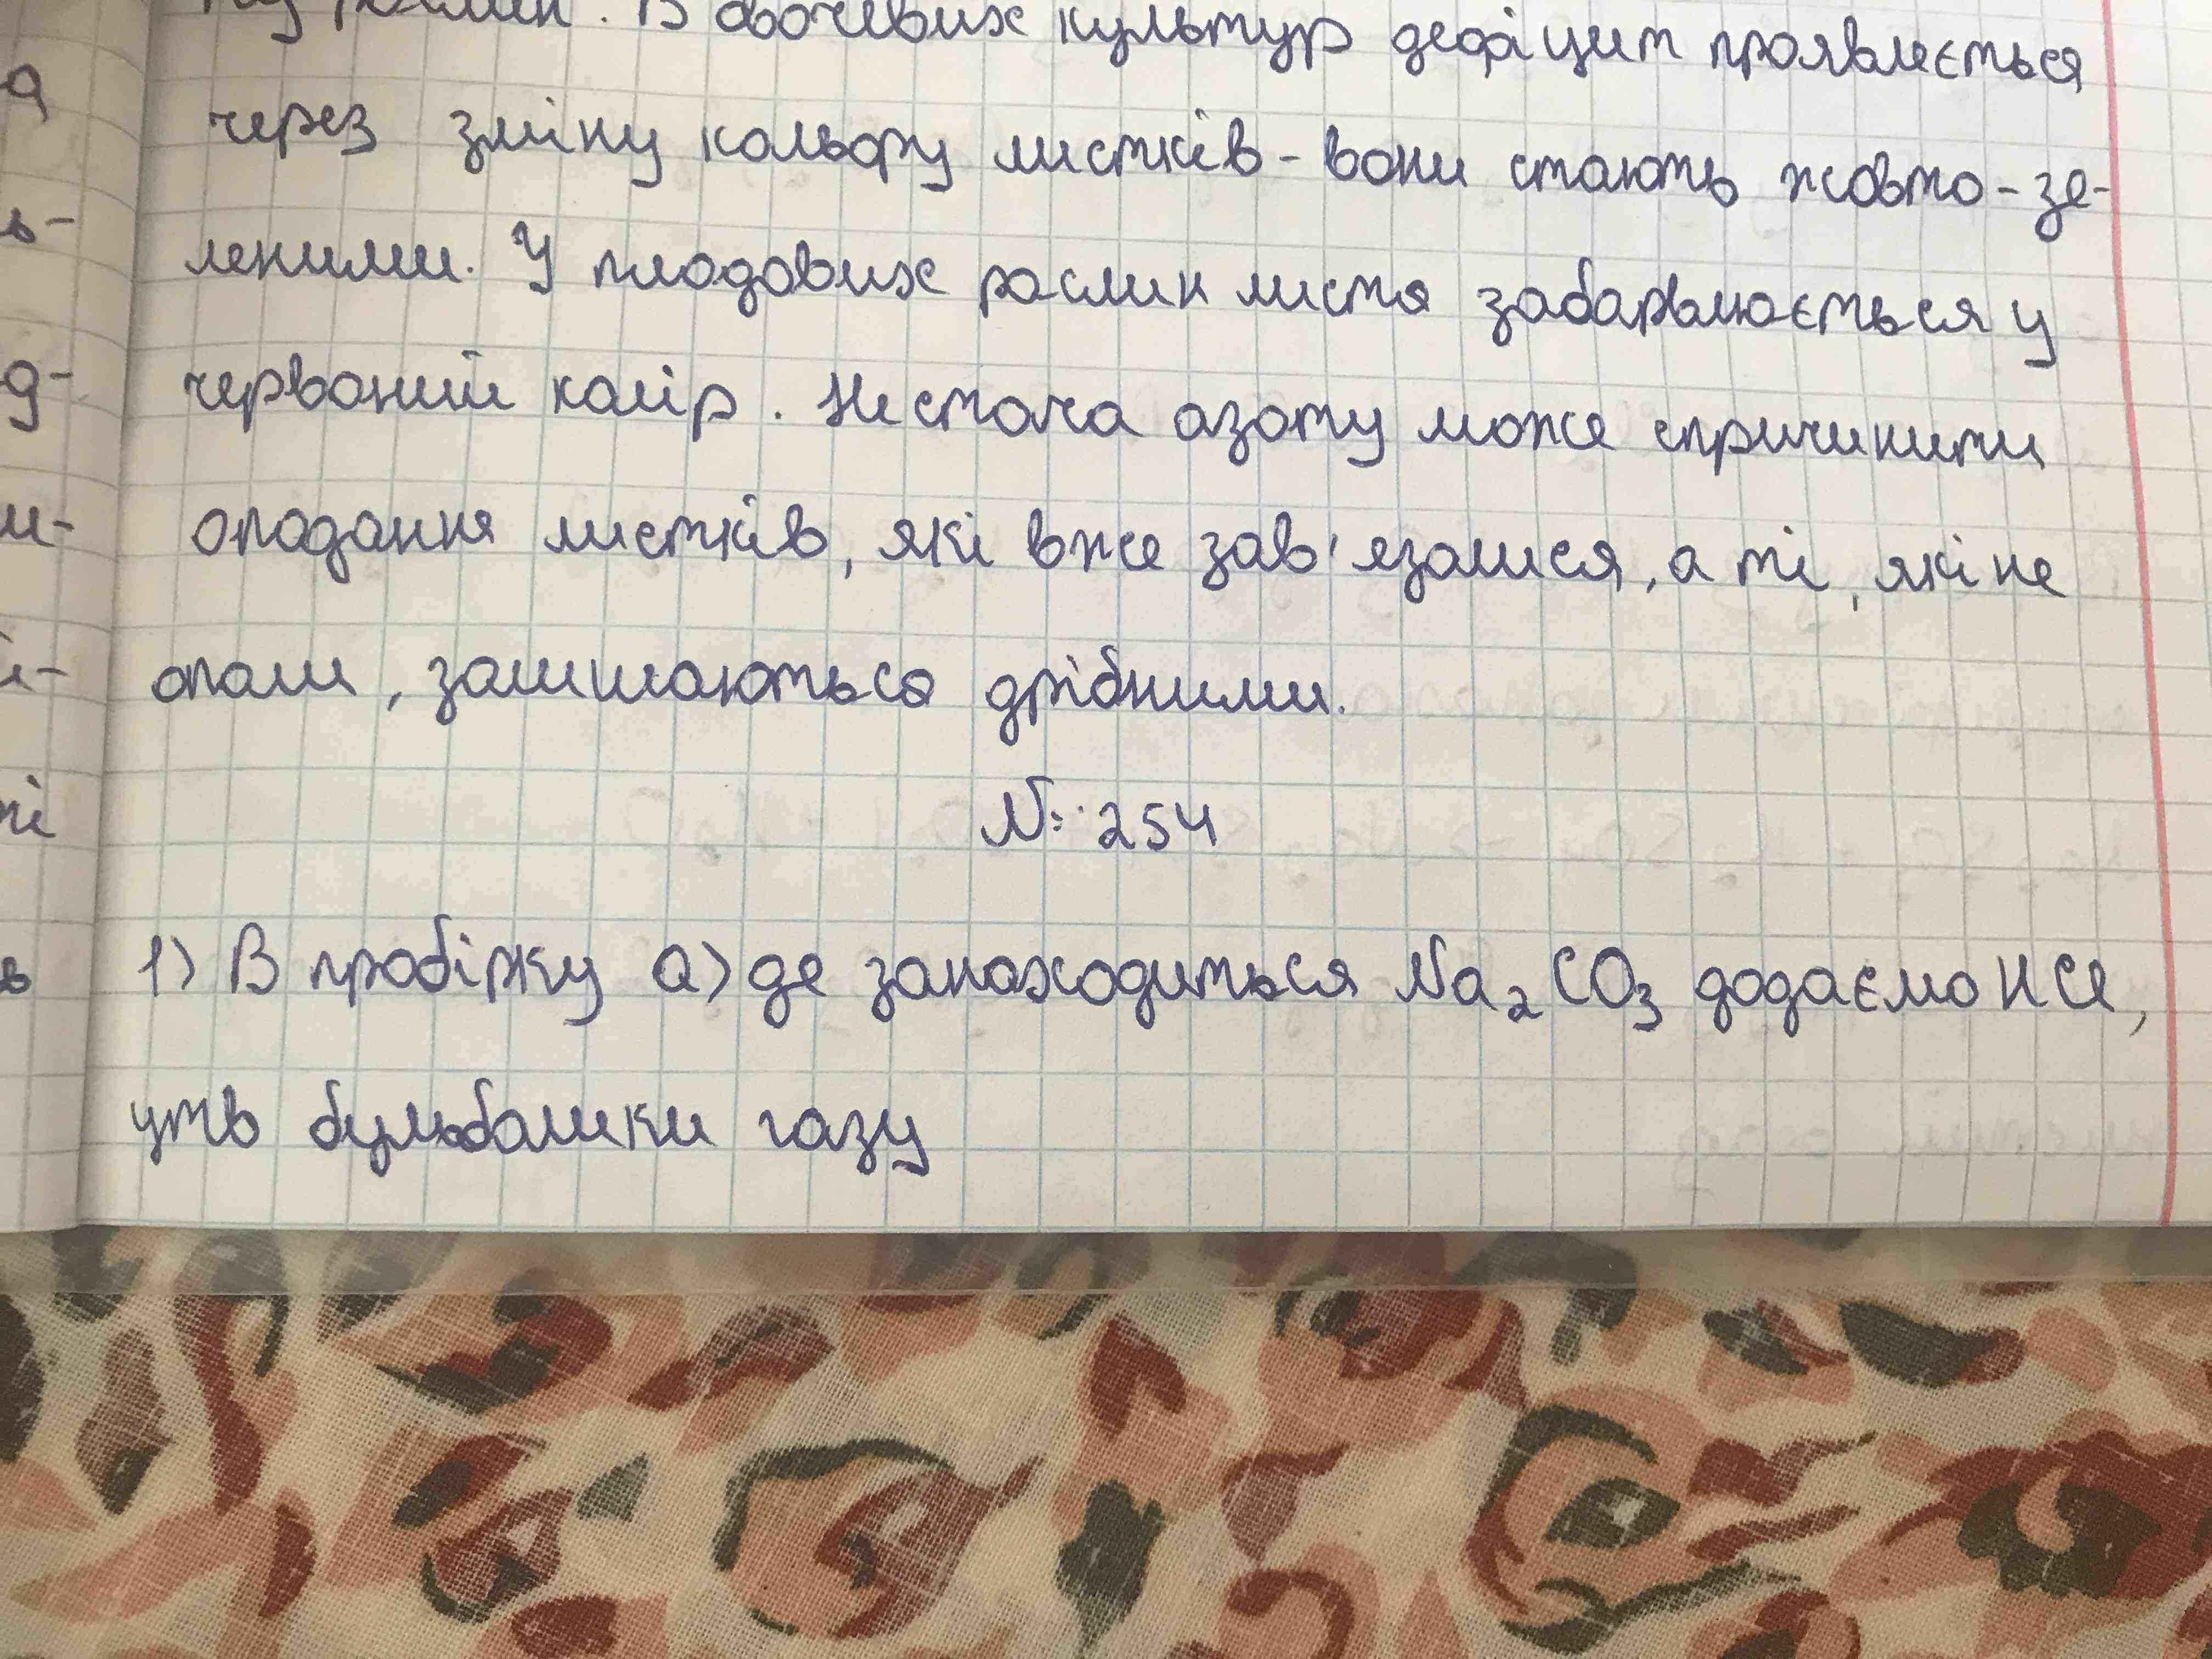 рослин. В овочевих культур дефіцит проявлється
через зміну кольору листків - вони стають жовто-зе-
леними. У плодових рослин листя забарвлюється у
червоний колір. Нестача азоту може спричинити
опадання листків, які вже зав'язалися, а ті, які не
опали, залишаються дрібними.
№ 254
1) В пробірку а) де занаходиться Na₂CO₃ додаємо HCl,
утв бульбашки газу